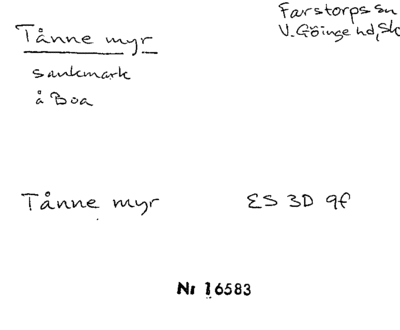 Tånne myr
Farstorps sn
V. Göinge hd, Sk
sankmark
å Boa
Tånne myr
ES 3D 9f
Nr 16583